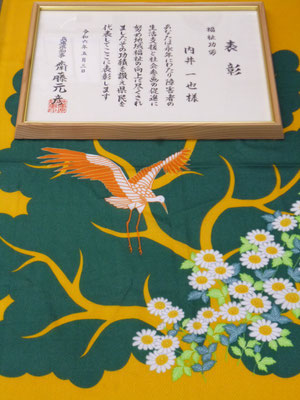 表彰
福祉功労
内井一也様
あなたは永年にわたり障害者の
生活支援と社会参画の促進に
努め地域福祉の向上に尽くされ
ましたその功績を讃え県民を
代表してここに表彰します
令和六年五月三日
兵庫県知事
齋藤元彦